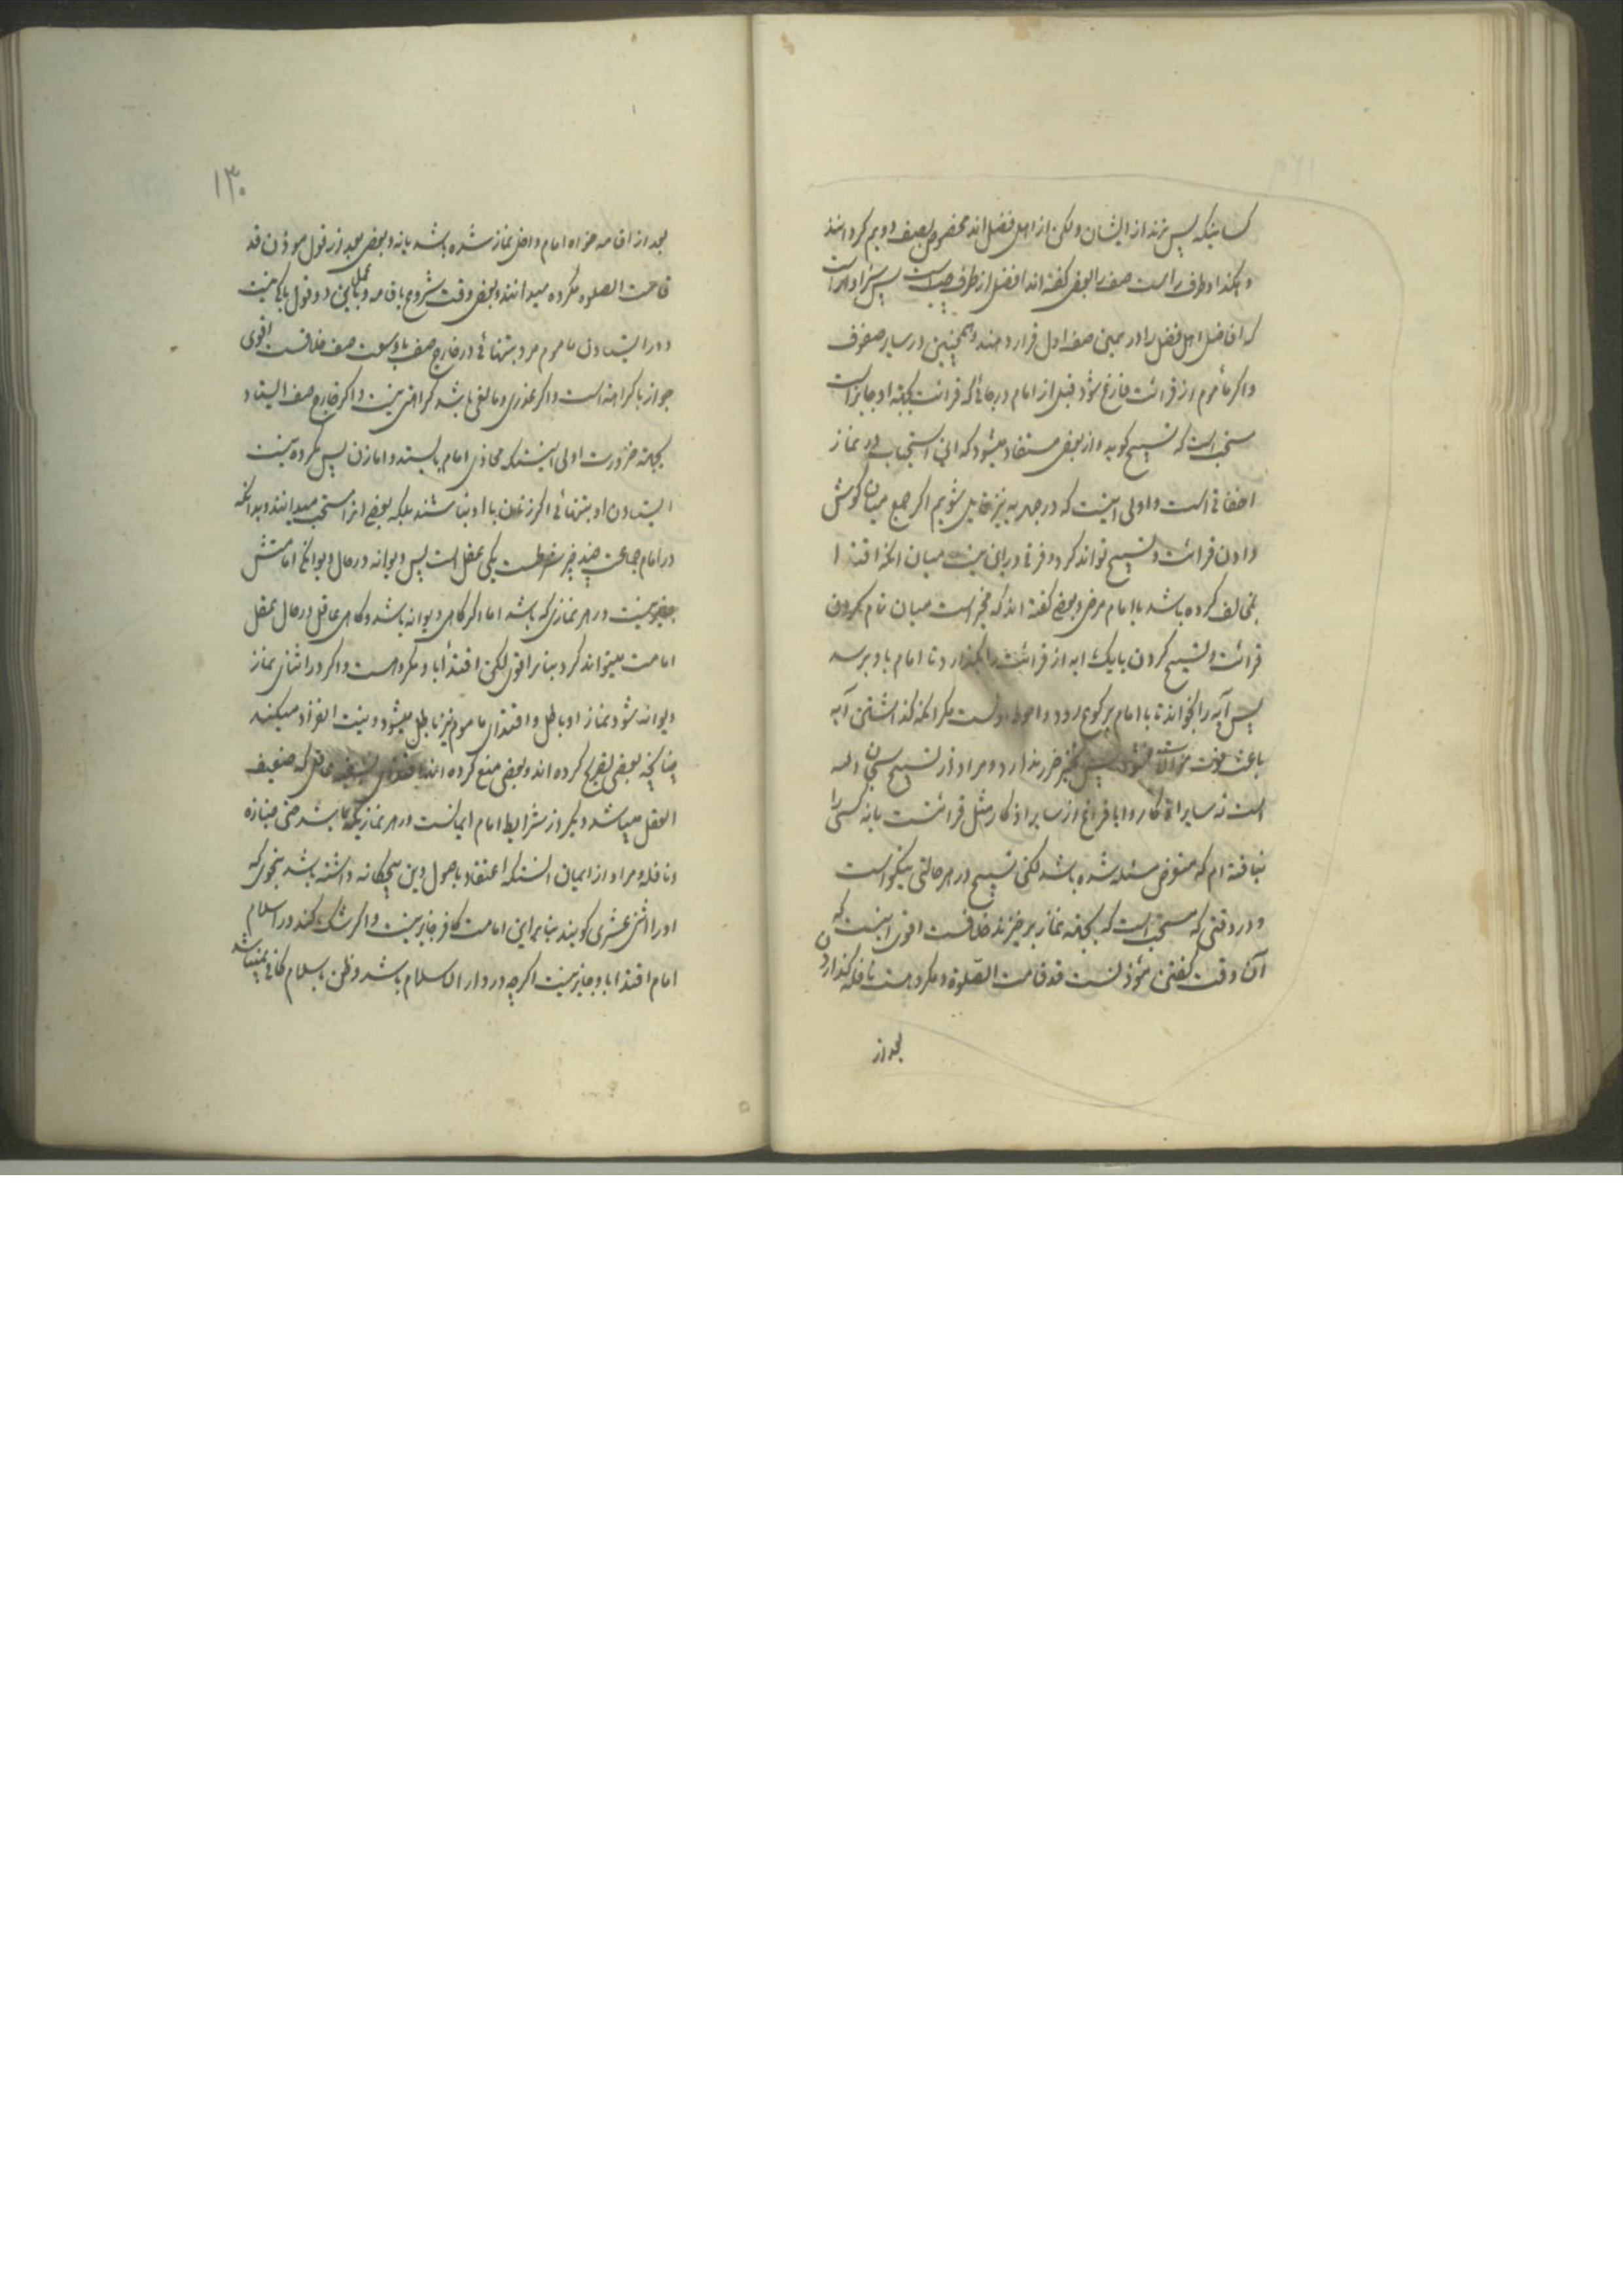 کسانیکه پس‌ترند از ایشان ولکن از اهل فضل‌اند مخصوص بصف دویم کردانند
و هکذا و طرف راست صف را بعضی کفته‌اند افضل از طرف چپ است پس سزاوار است
که افاضل اهل فضل را در یمین صف اول قرار دهند و همچنین در سایر صفوف
واکر مأموم از قرائت فارغ شود قبل از امام در جائی که قرائت بجهته او جایز است
مستحب است که تسبیح کوید و از بعضی مستفاد میشود که این استحباب در نماز
اخفاتی است و اولی اینست که در جهریه نیز قایل شویم اکر جمع میان کوش
دادن قرائت و تسبیح تواند کرد و فرقی در این نیست میان انکه اقتدا
بمخالف کرده باشد یا امام مرضی و بعضی کفته‌اند که مخیر است میان تمام کردن
قرائت و تسبیح کردن یا یک ایه از قرائت را بکذارد تا امام باو برسد
پس آیه را بخواند تا با امام برکوع رود و احوط اولست مکر انکه کذاشتن آیه
باعث فوت موالات نشود پس نیز ضرر ندارد و مراد از تسبیح سبحان الله
است نه سایر اذکار و ایا فراغ از سایر اذکار مثل قرائتست یا نه کسی را
نیافته‌ام که متعرض مسئله شده باشد لکن تسبیح در هر حالتی نیکو است
و در وقتی که مستحب است که بجهته نماز برخیزند خلافست اقوی اینست که
آن وقت کفتن مؤذنست قد قامت الصلوة و مکروهست نافله کذاردن
بعد از
۱۳۰
بعد از اقامه خواه امام داخل نماز شده باشد یا نه و بعضی بعد از قول موذن قد
قامت الصلوه مکروه میدانند و بعضی وقت شروع باقامه و عمل باین دو قول باکی نیست
و در ایستادن ماموم مرد بتنهائی در خارج صف با وسعت صف خلافست اقوی
جواز با کراهة است و اکر عذری و مانعی باشد کراهتی نیست و اکر خارج صف ایستاد
بجهته ضرورت اولی اینستکه محاذی امام بایستد و اما زن پس مکروه نیست
ایستادن او بتنهائی اکر زنان با او نباشند بلکه بعضی انرا مستحب میدانند و بدانکه
در امام جماعت چند چیز شرطست یکی عقل است پس دیوانه در حال دیوانکی امامتش
صحیح نیست در هر نمازی که باشد اما اکر کاهی دیوانه باشد و کاهی عاقل در حال عقل
امامت میتواند کرد بنابر اقوی لکن اقتدا باو مکروهست و اکر در اثنای نماز
دیوانه شود نماز او باطل و اقتدای ماموم نیز باطل میشود و نیت انفراد میکند
چنانچه بعضی تصریح کرده‌اند و بعضی منع کرده‌اند اقتدای بسفیه عاقل که ضعیف
العقل میباشد دیکر از شرایط امام ایمانست در هر نمازیکه باشد حتی جنازه
و نافله و مراد از ایمان انستکه اعتقاد باصول دین پنجکانه داشته باشد بنحوی که
اورا اثنی عشری کویند بنابراین امامت کافر جایز نیست و اکر شک کند در اسلام
امام اقتدا باو جایز نیست اکرچه در دار الاسلام باشد و ظن باسلام کافی نمیباشد